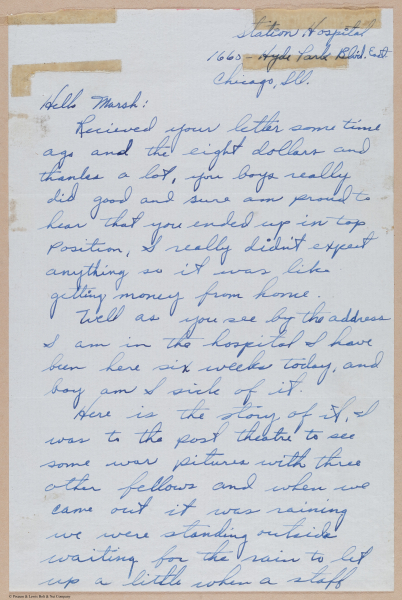 Station Hospital
1660 - Hyde Park Blvd. East
Chicago, Ill.
Hello Marsh:
Recieved your letter some time
ago and the eight dollars and
thanks a lot, you boys really
did good and sure am proud to
hear that you ended up in top
Position, I really didn't expect
anything so it was like
getting money from home.
Well as you see by the address
I am in the hospital I have
been here six weeks today, and
boy am I sick of it.
Here is the story of it, I
was to the post theatre to see
some war pitures with three
other fellows and when we
came out it was raining
we were standing outside
waiting for the rain to let
up a little when a staff